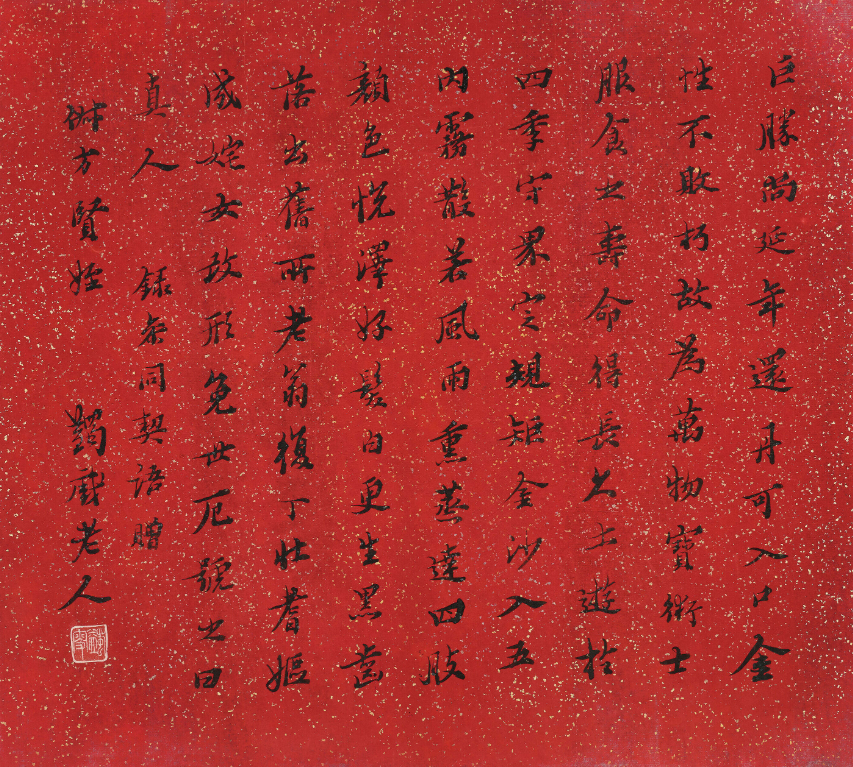 巨勝尚延年還丹可入口金
性不敗朽故為萬物寶術士
服食之壽命得長久土遊於
四季守界定規矩金沙入五
內霧散若風雨熏蒸達四肢
顏色悅澤好髮白更生黑齒
落出舊所老翁復丁壯耆嫗
成姹女改形免世厄號之曰
真人 録參同契語贈
方賢姪 蠲戲老人